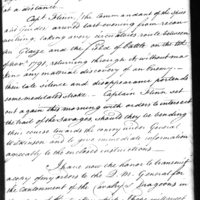 at a distance.
Capt Flinn, the Commandant of the spies
and Guides, arrived last evening from reconn
oitring, taking a very circuitous route between
the Glaize and the field of battle on the 4th
of Novr 1791, returning through it without ma
king any material discovery of an enemy—
their late silence and disappearance portends
some meditated stroke. Captain Flinn set
out again this morning with orders to intersect
the trail of the Savages should they be bending
their course towards the convoy under General
Wilkinson and to give immediate information
agreeably to the enclosed instructions.—
I have now the honor to transmit
a copy of my orders to the Q. M. General for
the Cantonment of the Cavalry & Dragoons in